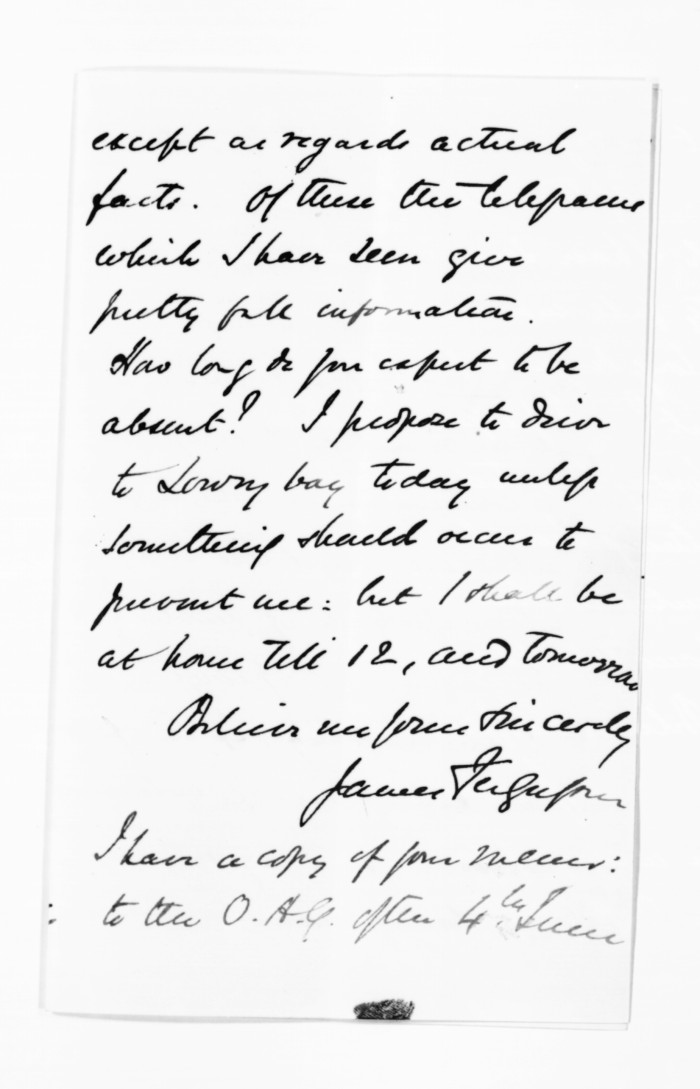 except as regards actual
facts. Of these the telegrams
which I have seen give
pretty full information.
How long do you expect to be
absent? I propose to drive
to Lowry bay today unless
something should occur to
prevent me: but I shall be
at home till 12, and tomorrow
Believe me yours sincerely
James Fergusson
I have a copy of your memo:
to the O.A.G. of the 4th June